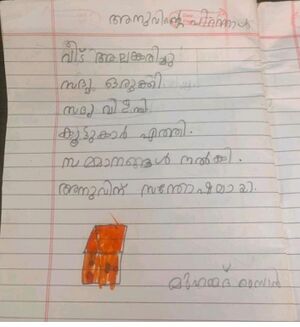 അനുവിന്റെ പിറന്നാൾ
വീട് അലങ്കരിച്ചു
സദ്യ ഒരുക്കി.
സദ്യ വിളമ്പി.
കൂട്ടുകാർ എത്തി.
സമ്മാനങ്ങൾ നൽകി.
അനുവിന് സന്തോഷമായി.
മുഹമ്മദ്